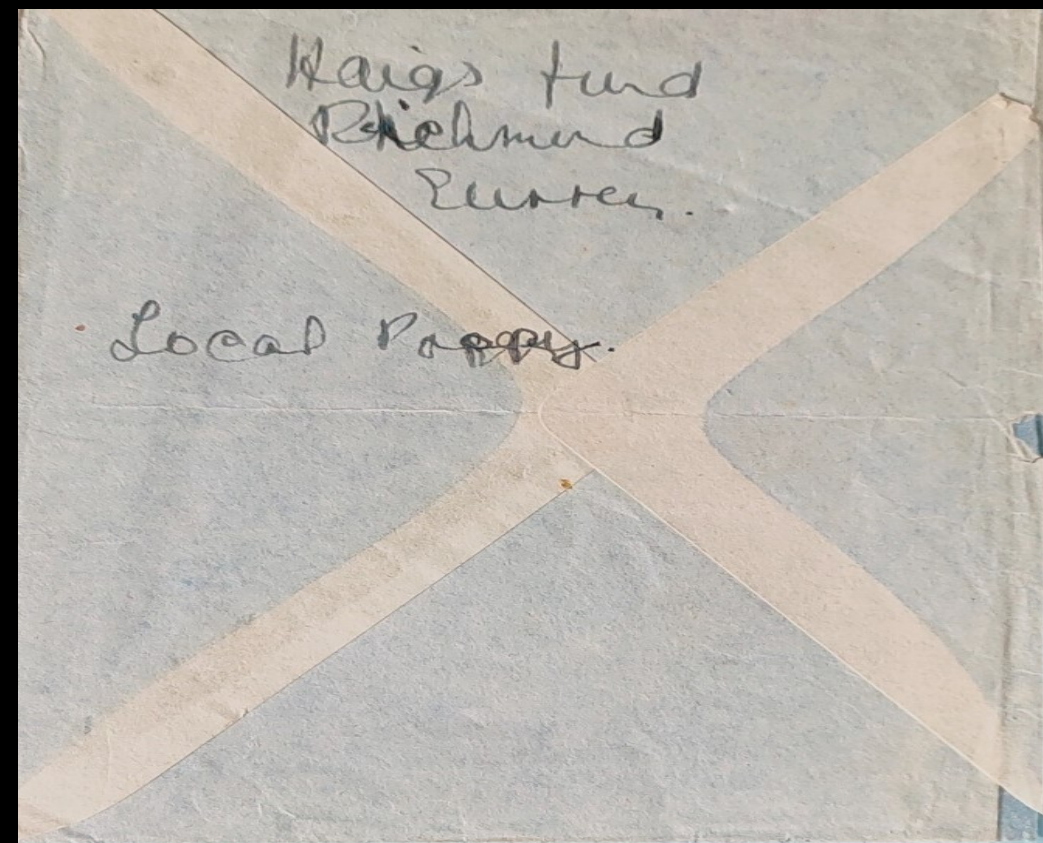 Haigs Fund
Richmond
Surrey.
Local Poppy.